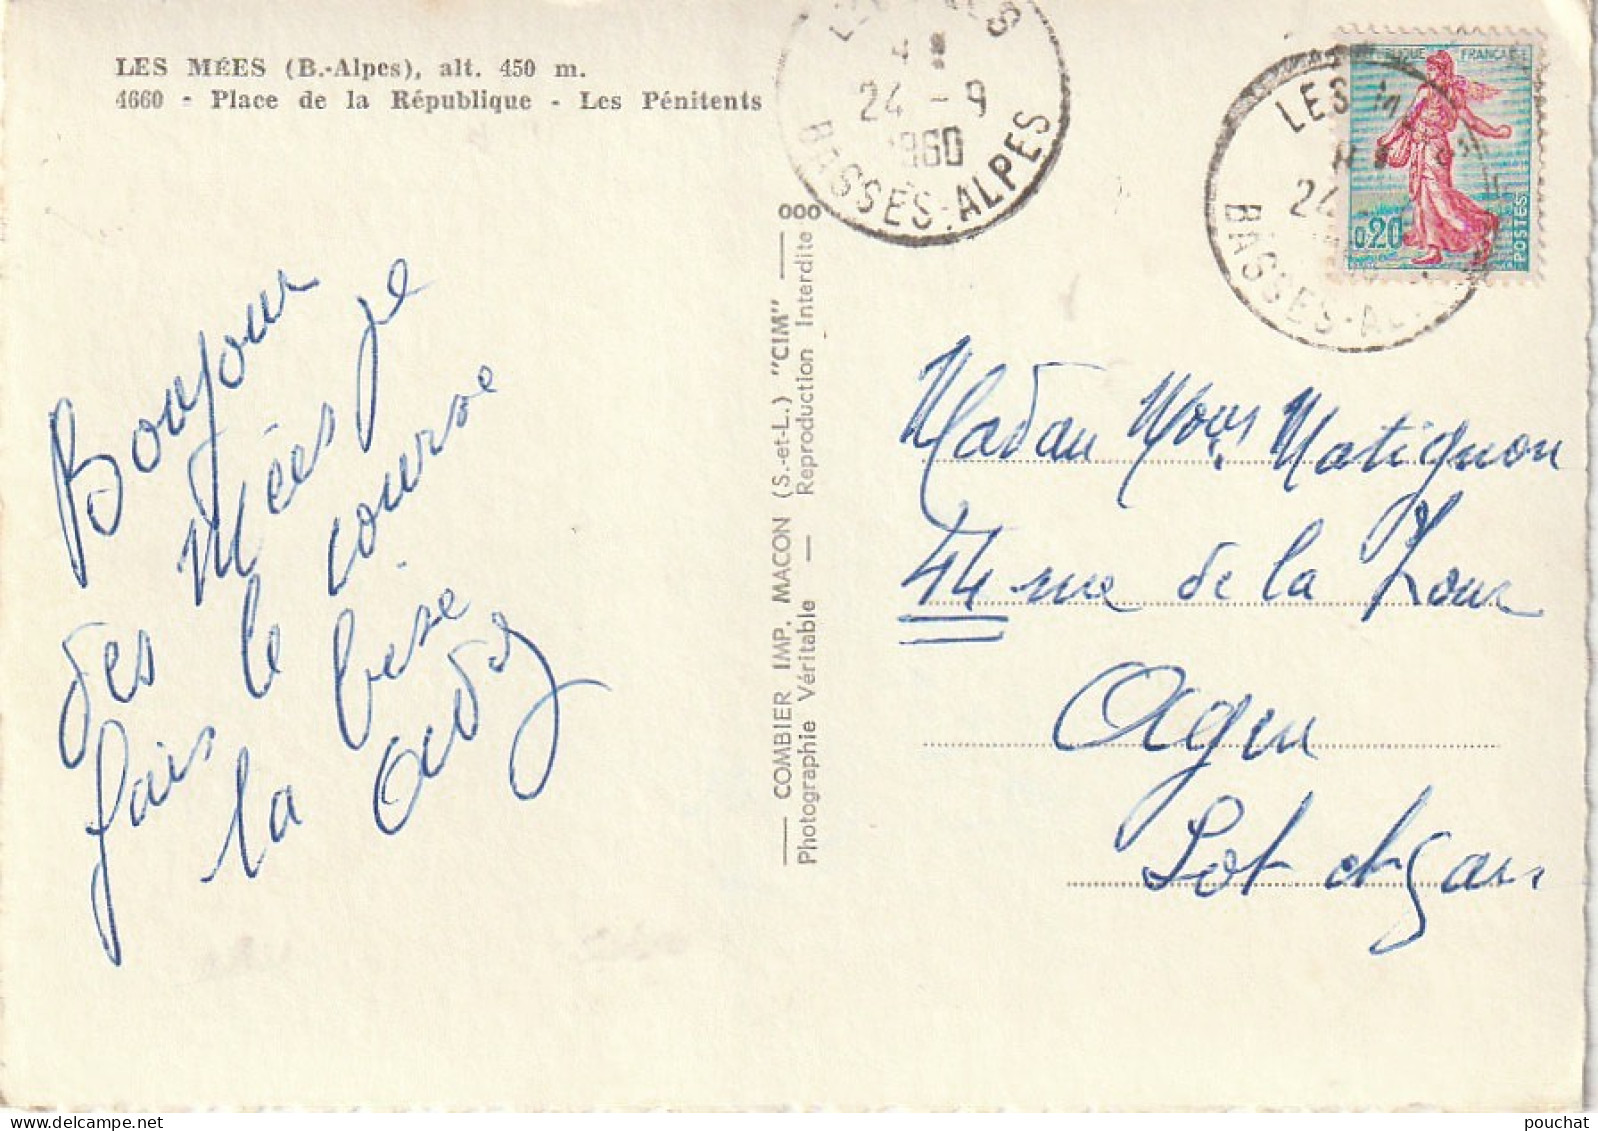 LES MÉES (B.-Alpes), alt. 450 m.
4660 - Place de la République - Les Pénitents
24 - 9
1960
BASSES-ALPES
LES M
24
BASSES-AL
REPUBLIQUE FRANÇAISE
0,20
POSTES
Bonjour
des Mées je
fais le course
la bise
COMBIER IMP. MACON (S.-et-L.) "CIM"
Photographie Véritable — Reproduction Interdite
Matignon
44 rue de la
Agen
Lot et Gar
pouchat